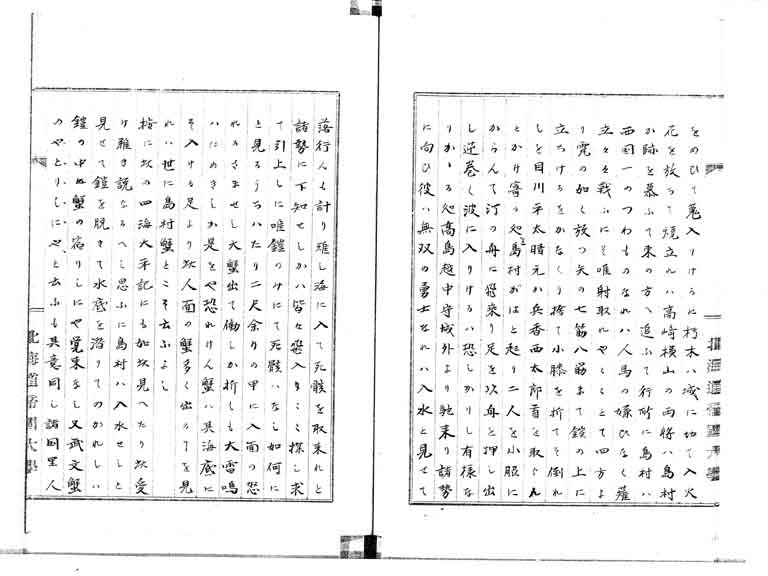 をのひて忍入りけるに朽木ハ城に切て入火
花を放ちて焼立れハ高崎横山の両将ハ島村
か跡を慕ふて東の方へ追ふて行所に島村ハ
西国一のつわものなれハ人馬の嫌ひなく薙
立々々戦ふにそ唯射取れやくとて四方よ
り霓の如く放つ矢の七筋八筋まて鎧の上に
立ちけるをかなくり捨て小膝を折てそ倒れ
しを目川平太晴元か兵香西太郎首を取らん
とかけ寄る処島村がはと起り二人を小脇に
からんて汀の舟に飛乗り足を以舟と押し出
し逆巻く波に入りけるハ恐しかりし有様な
りかゝる処高島越中守城外より馳来り諸勢
に向ひ彼ハ無双の勇士なれハ入水と見せて
落行人も計り難し海に入て死骸を取来れと
諸勢に下知せしかハ皆々飛入りこゝ探し求
て引上しに唯鎧のみにて死骸ハなし如何に
と見るうちハたり二尺余りの甲に人面の恐
れるさませし大蟹出て働しか折しも大雷鳴
ハにめきしか是をや恐れけん蟹ハ其海底に
そ入りける足より以人面の蟹多く出るを見
れハ世に島村蟹とこそ云ふよし
按に以の四海太平記にも如以見へたり以受
け難き説なるへし思ふに島村ハ入水せしと
見せて鎧を脱きて水底を潜りてのかれしハ
鎧の中ぬ蟹の宿りしにや覚束なし又武文蟹
のやとりしにやと云ふも其意同し諸国里人
北海道帝国大学